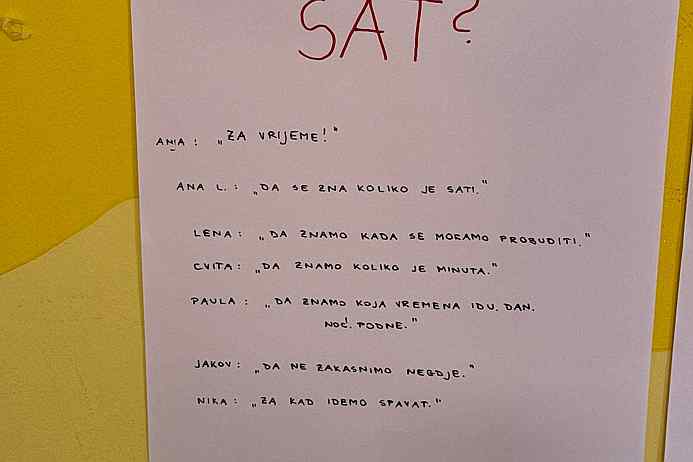 SAT?
ANJA: „ZA VRIJEME!"
ANA L.: „DA SE ZNA KOLIKO JE SATI."
LENA: „DA ZNAMO KADA SE MORAMO PROBUDITI."
CVITA: „DA ZNAMO KOLIKO JE MINUTA."
PAULA: „DA ZNAMO KOJA VREMENA IDU. DAN.
NOĆ. PODNE."
JAKOV: „DA NE ZAKASNIMO NEGDJE."
NIKA: „ZA KAD IDEMO SPAVAT."